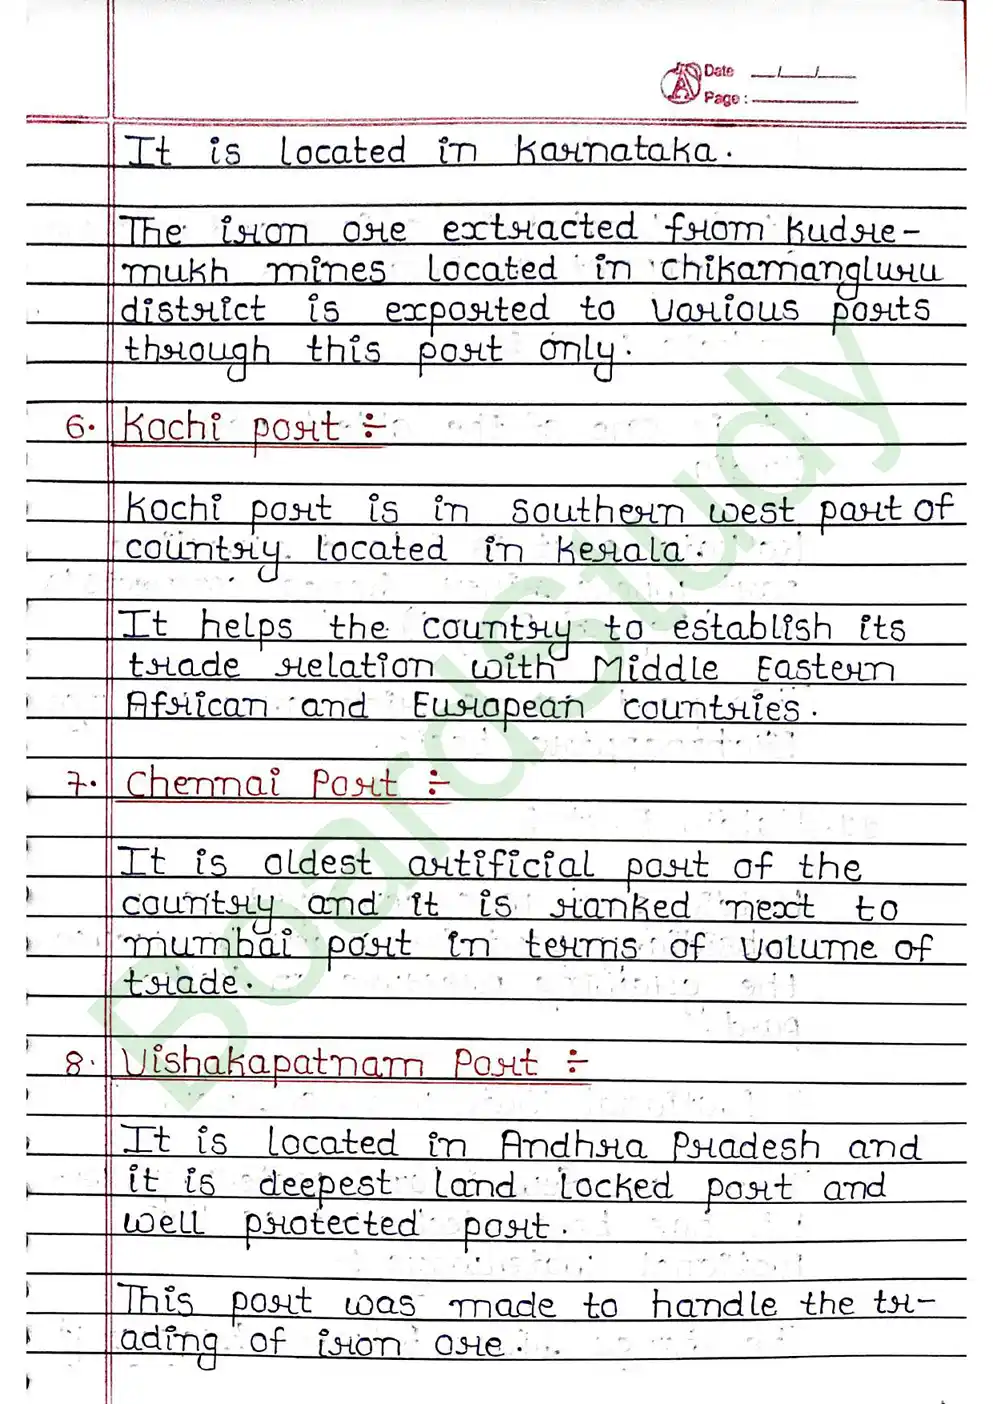 Date __/__/__
Page: ______
It is located in Karnataka.
The iron ore extracted from Kudre-
mukh mines located in Chikamangluru
district is exported to various ports
through this port only.
6. Kochi port ÷
Kochi port is in southern west part of
country located in Kerala.
It helps the country to establish its
trade relation with Middle Eastern
African and European countries.
7. Chennai Port ÷
It is oldest artificial port of the
country and it is ranked next to
mumbai port in terms of volume of
trade.
8. Vishakapatnam Port ÷
It is located in Andhra Pradesh and
it is deepest land locked port and
well protected port.
This port was made to handle the tr-
ading of iron ore.
BoardStudy